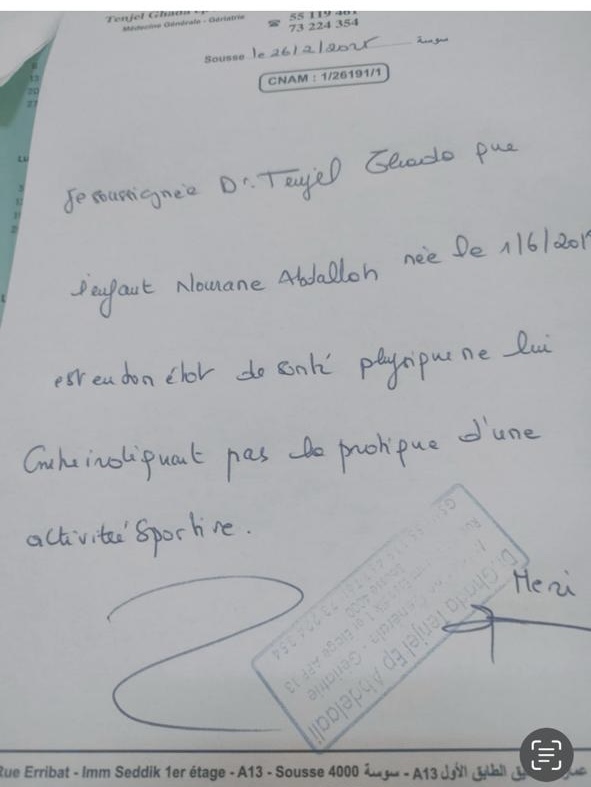 Tenjel Ghada Ep
Médecine Générale - Gériatrie
55 119 461
73 224 354
Sousse le 26/2/2025 سوسة
CNAM : 1/26191/1
Je soussignée Dr. Tenjel Ghada que
l'enfant Nourane Abdallah née le 1/6/201
est en bon état de santé physique ne lui
Contreindiquant pas la pratique d'une
activité Sportive.
Merci
Dr Ghada Tenjel Ep Abdelaali
Générale - Gériatrie
Rue Erribat - Imm Seddik 1er étage - A13 - Sousse 4000 سوسة - A13 الطابق الأول